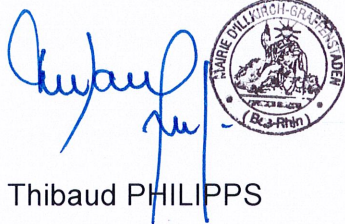 MAIRIE D'ILLKIRCH-GRAFFENSTADEN
(Bas-Rhin)
Thibaud PHILIPPS